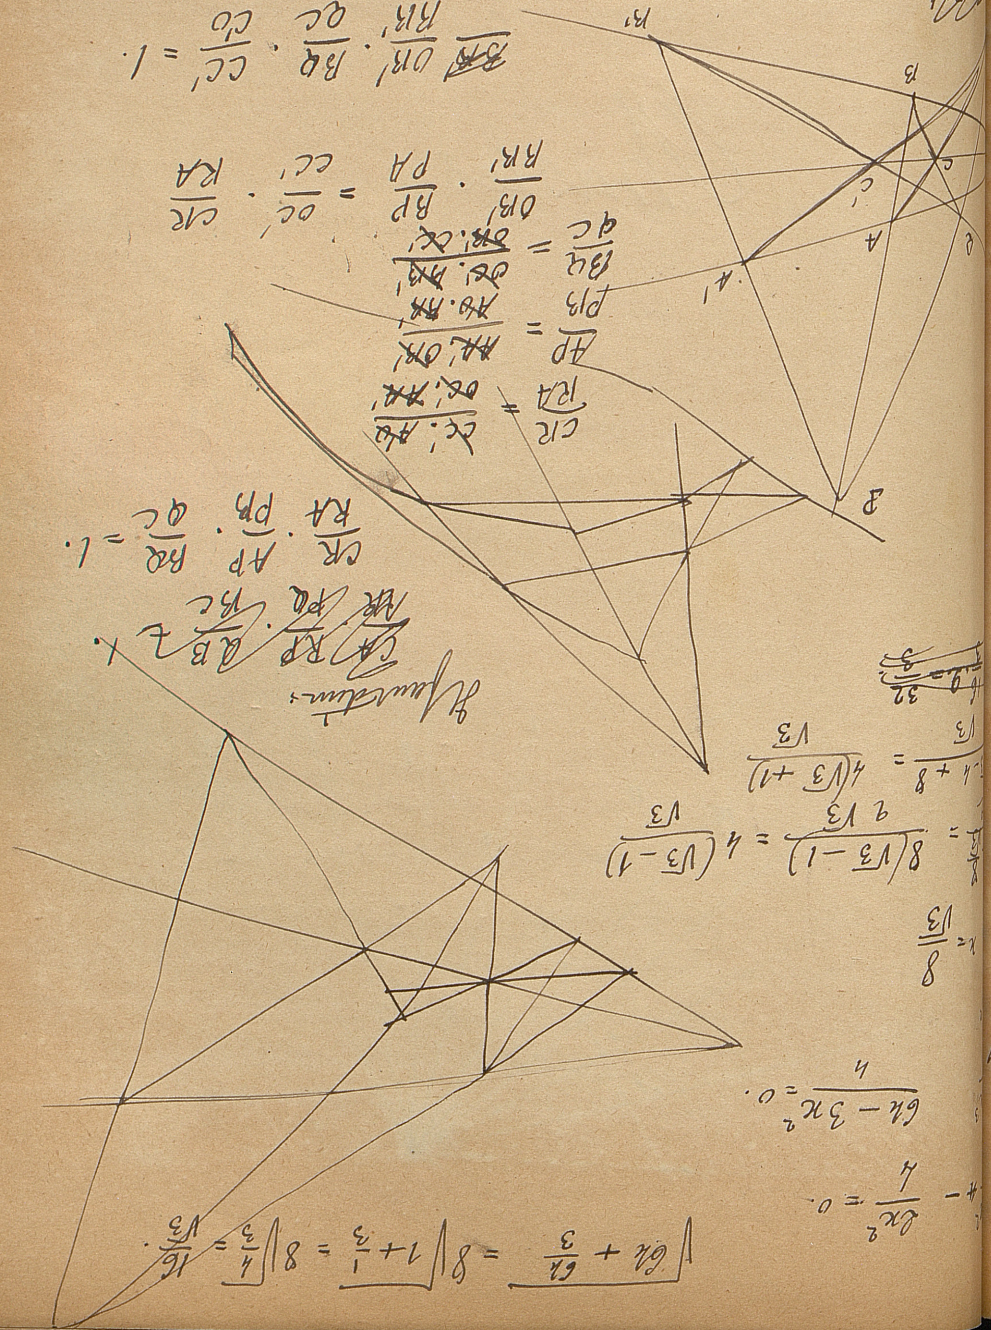 √(64 + 64/3) = 8√(1 + 1/3) = 8√(4/3) = 16/√3.
2x²/4 = 0.
(64 − 3x²)/4 = 0.
x = 8/√3
= 8(√3 − 1)/2√3 = 4(√3 − 1)/√3
= 4(√3 + 1)/√3
CA/AR · RP/PQ · QB/BC = 1.
CR/RA · AP/PB · BQ/QC = 1.
P
CR/RA = CC'.AO/OC'.AA'
AP/PB = AA'.OB'/AO.BB'
BQ/QC = OC'.BB'/OB'.CC'
A'
A
C'
C
OB'/BB' · BP/PA = OC'/CC' · CR/RA
B
B'
OB'/BB' · BQ/QC · CC'/C'O = 1.